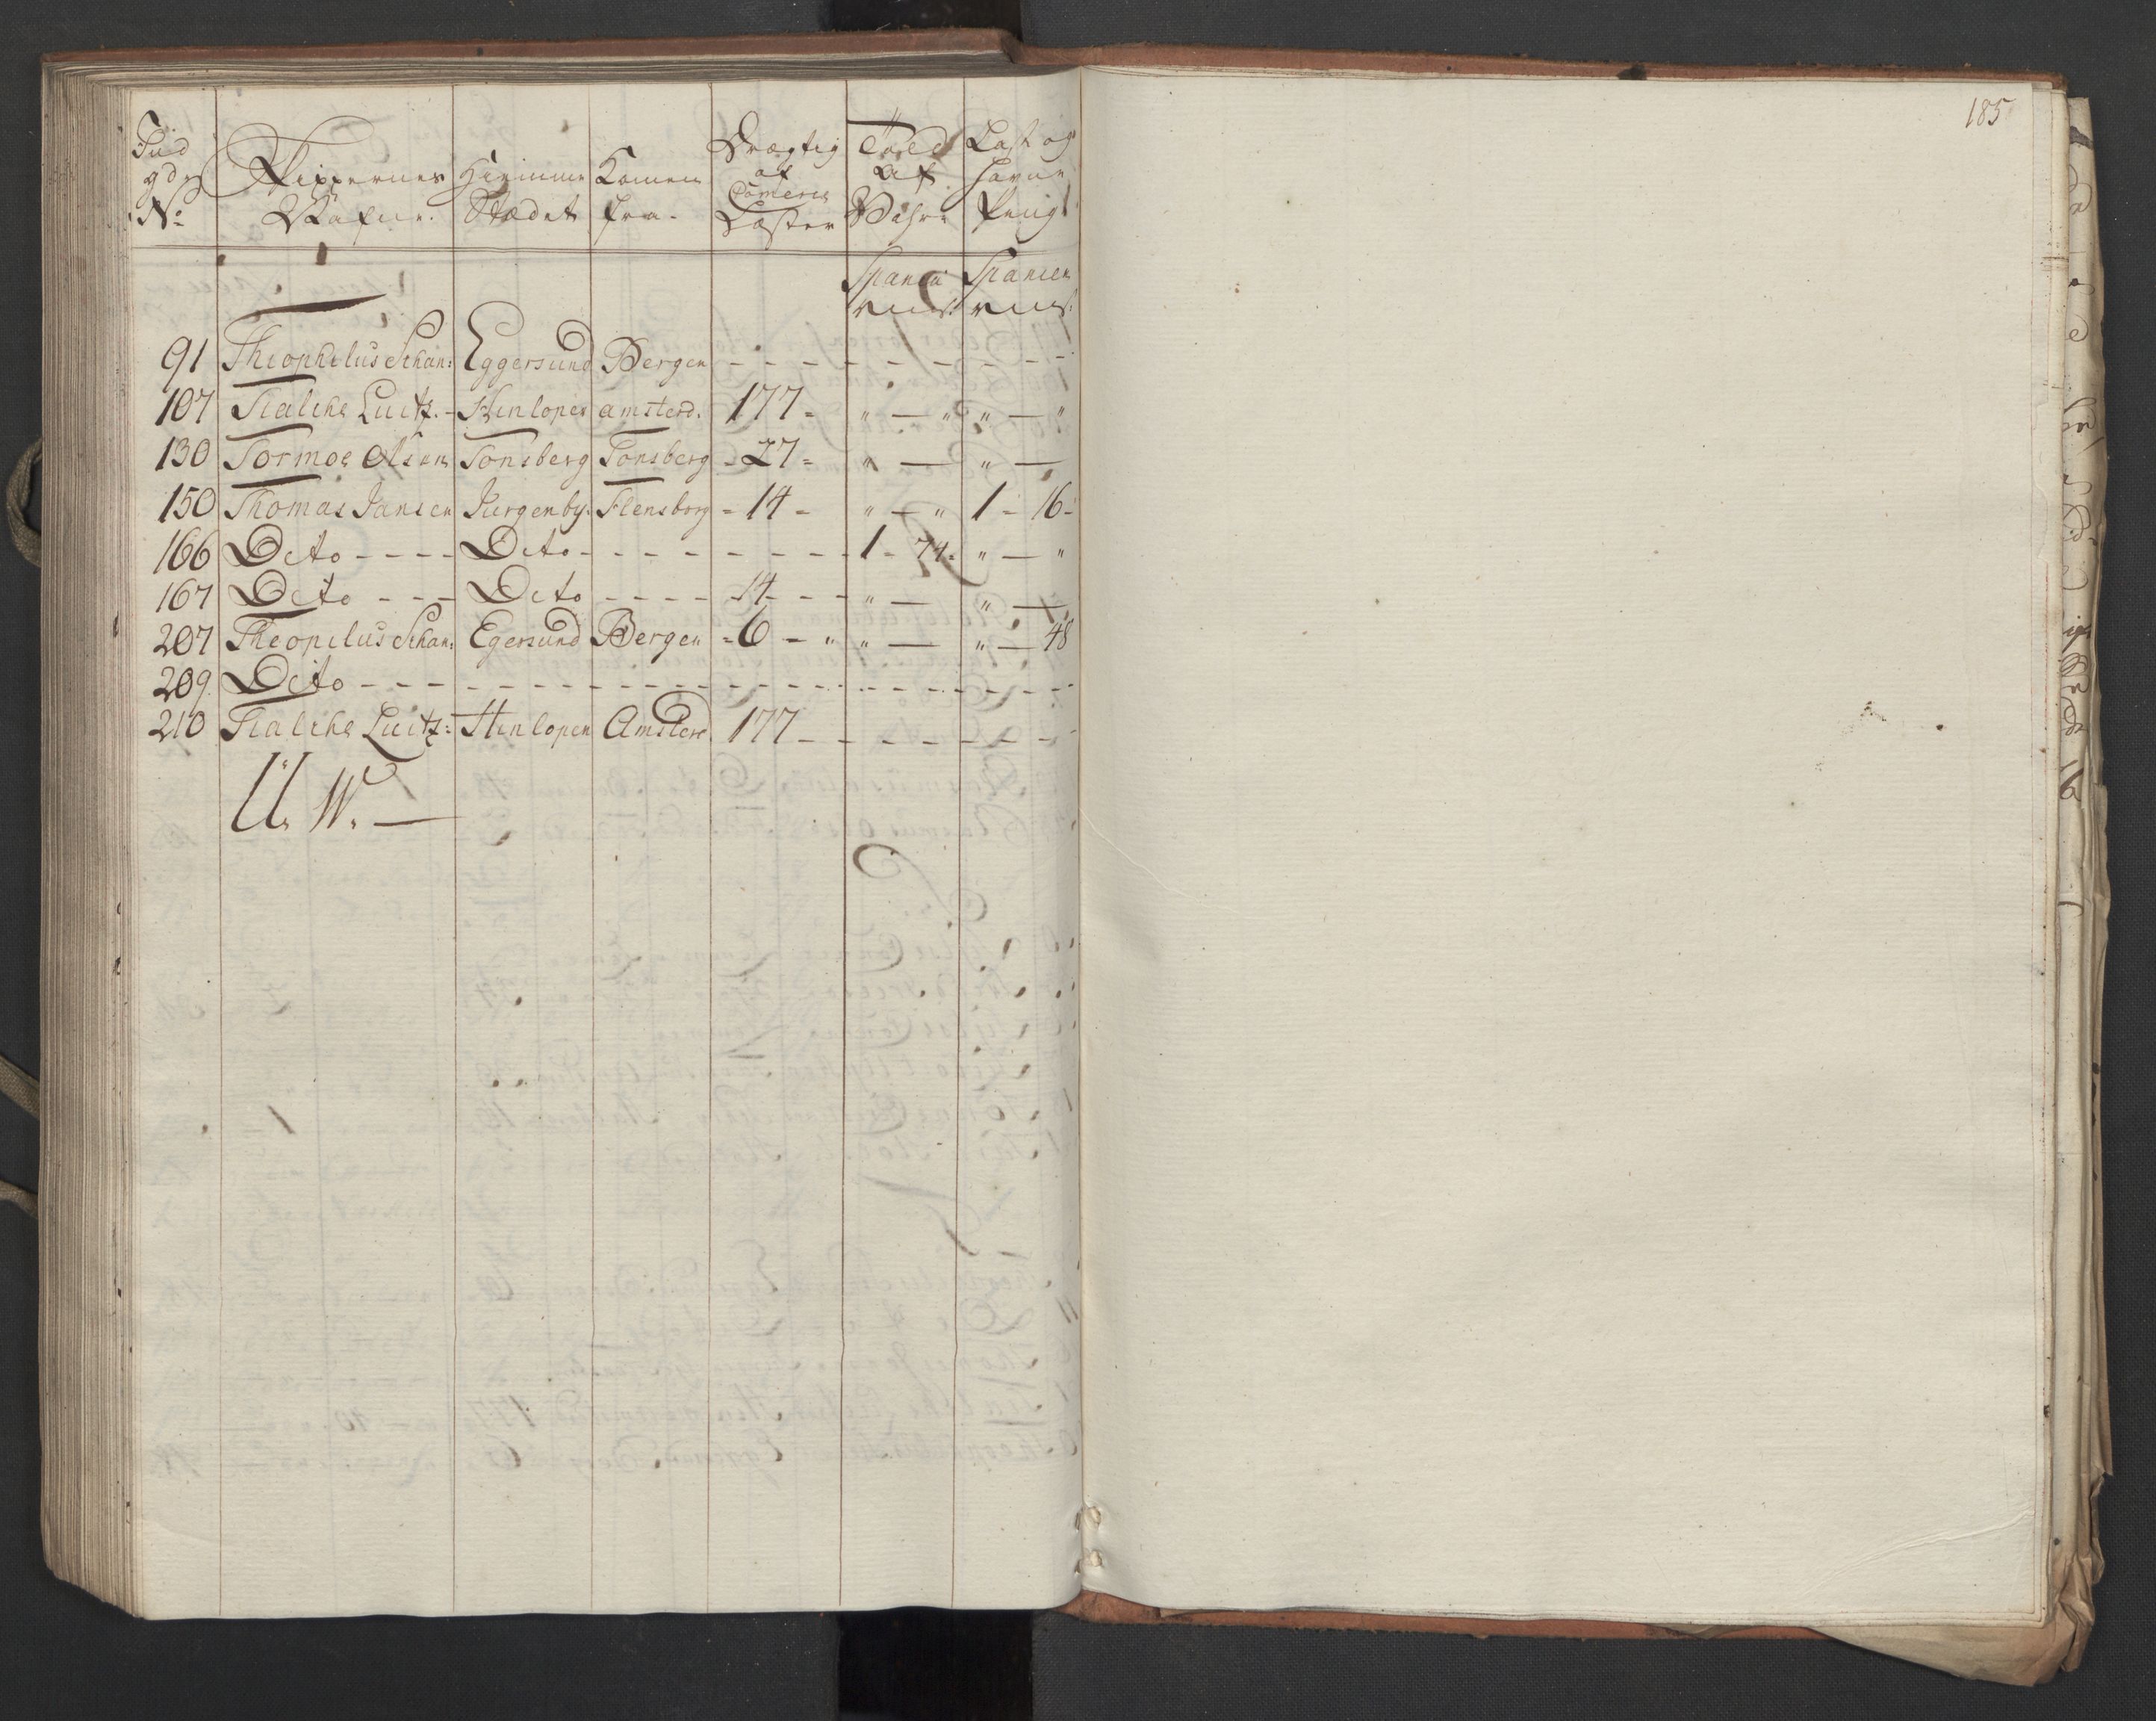 185
Ind
gde
No
Skippernes
Nafne.
Hiemme
Stædet
Komen
fra.
Drægtig
af
Comerce
Læster
Told
af
Vahre
Last og
Havne
Penge
91 Theophilus Schan: Eggersund Bergen - - - - - - - -
107 Tialche Luitz. - Hinlopen amsterd. 177 = " — " " — "
130 Tormoe Olsen Tonsberg Tonsberg - 27 = " — " —
150 Thomas Jansen Jurgenby. Flensborg = 14 - " — " 1 - 16 -
166 Dito - - - - Dito - - - - - - - - 1 - 74. " — "
167 Dito - - - Dito - - - - 14 - - - " — " —
207 Theopilus Schan: Egersund Bergen = 6 - " " — " — 48
209. Dito - - - - - - - - - - - - - - - -
210 Tialche Luitz: Hinlopen Amsterd 177 - - - - - - -
U. W. —